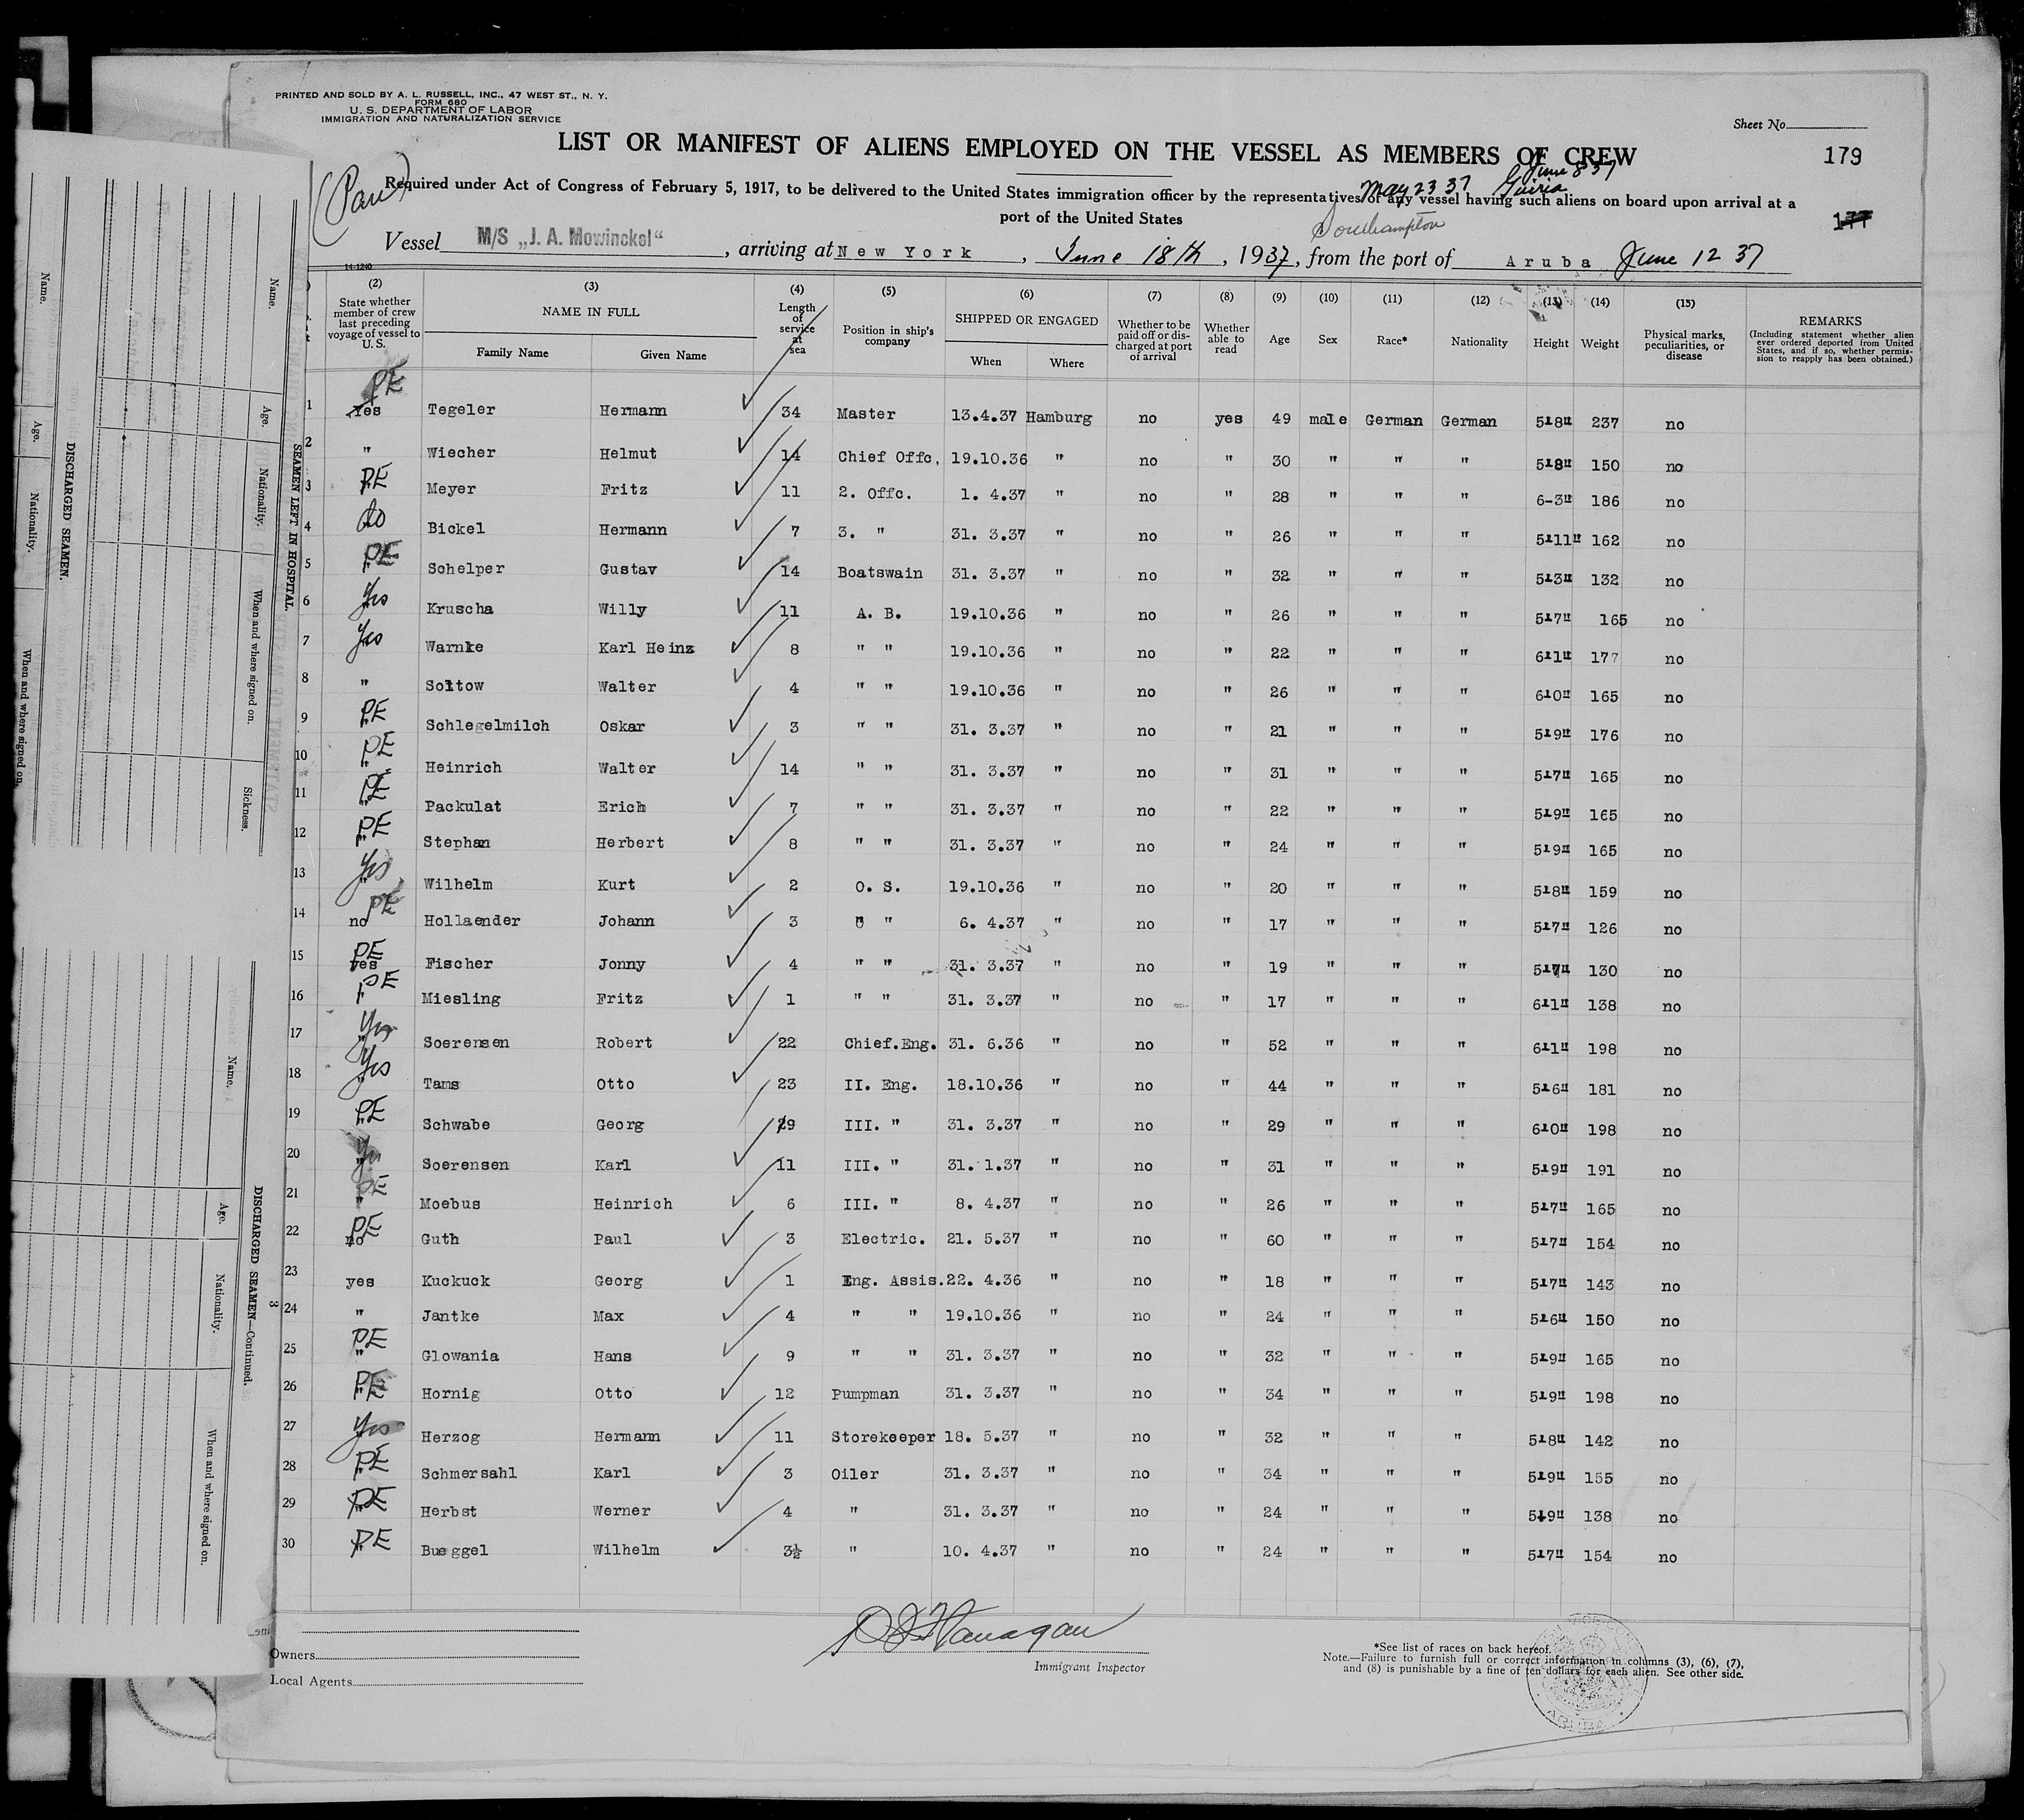 PRINTED AND SOLD BY A. L. RUSSELL, INC., 47 WEST ST., N. Y.
FORM 680
U. S. DEPARTMENT OF LABOR
IMMIGRATION AND NATURALIZATION SERVICE
Sheet No.
LIST OR MANIFEST OF ALIENS EMPLOYED ON THE VESSEL AS MEMBERS OF CREW
179
June 8 37
(Pan)
May 23 37 Guiria
Required under Act of Congress of February 5, 1917, to be delivered to the United States immigration officer by the representatives of any vessel having such aliens on board upon arrival at a
port of the United States
177
Southampton
Vessel M/S „J. A. Mowinckel“, arriving at New York, June 18th, 1937, from the port of Aruba June 12 37
14-1240
(2) (3) (4) (5) (6) (7) (8) (9) (10) (11) (12) (13) (14) (15)
State whether member of crew last preceding voyage of vessel to U. S. NAME IN FULL Family Name Given Name Length of service at sea Position in ship's company SHIPPED OR ENGAGED When Where Whether to be paid off or discharged at port of arrival Whether able to read Age Sex Race* Nationality Height Weight Physical marks, peculiarities, or disease REMARKS (Including statement whether alien ever ordered deported from United States, and if so, whether permission to reapply has been obtained.)
1 PE Yes Tegeler Hermann 34 Master 13.4.37 Hamburg no yes 49 male German German 5'8" 237 no
2 " Wiecher Helmut 14 Chief Offc, 19.10.36 " no " 30 " " " 5'8" 150 no
3 PE Meyer Fritz 11 2. Offc. 1. 4.37 " no " 28 " " " 6-3" 186 no
4 do Bickel Hermann 7 3. " 31. 3.37 " no " 26 " " " 5'11" 162 no
5 PE Schelper Gustav 14 Boatswain 31. 3.37 " no " 32 " " " 5'3" 132 no
6 Yes Kruscha Willy 11 A. B. 19.10.36 " no " 26 " " " 5'7" 165 no
7 Yes Warnke Karl Heinz 8 " " 19.10.36 " no " 22 " " " 6'1" 177 no
8 " Soltow Walter 4 " " 19.10.36 " no " 26 " " " 6'0" 165 no
9 PE Schlegelmilch Oskar 3 " " 31. 3.37 " no " 21 " " " 5'9" 176 no
10 PE Heinrich Walter 14 " " 31. 3.37 " no " 31 " " " 5'7" 165 no
11 PE Packulat Erich 7 " " 31. 3.37 " no " 22 " " " 5'9" 165 no
12 PE Stephan Herbert 8 " " 31. 3.37 " no " 24 " " " 5'9" 165 no
13 Yes Wilhelm Kurt 2 O. S. 19.10.36 " no " 20 " " " 5'8" 159 no
14 no PE Hollaender Johann 3 " " 6. 4.37 " no " 17 " " " 5'7" 126 no
15 PE yes Fischer Jonny 4 " " 31. 3.37 " no " 19 " " " 5'7" 130 no
16 PE " Miesling Fritz 1 " " 31. 3.37 " no " 17 " " " 6'1" 138 no
17 Yes Soerensen Robert 22 Chief.Eng. 31. 6.36 " no " 52 " " " 6'1" 198 no
18 Yes Tams Otto 23 II. Eng. 18.10.36 " no " 44 " " " 5'6" 181 no
19 PE Schwabe Georg 29 III. " 31. 3.37 " no " 29 " " " 6'0" 198 no
20 Yes Soerensen Karl 11 III. " 31. 1.37 " no " 31 " " " 5'9" 191 no
21 PE Moebus Heinrich 6 III. " 8. 4.37 " no " 26 " " " 5'7" 165 no
22 PE no Guth Paul 3 Electric. 21. 5.37 " no " 60 " " " 5'7" 154 no
23 yes Kuckuck Georg 1 Eng. Assis. 22. 4.36 " no " 18 " " " 5'7" 143 no
24 " Jantke Max 4 " " 19.10.36 " no " 24 " " " 5'6" 150 no
25 PE " Glowania Hans 9 " " 31. 3.37 " no " 32 " " " 5'9" 165 no
26 PE Hornig Otto 12 Pumpman 31. 3.37 " no " 34 " " " 5'9" 198 no
27 Yes Herzog Hermann 11 Storekeeper 18. 5.37 " no " 32 " " " 5'8" 142 no
28 PE Schmersahl Karl 3 Oiler 31. 3.37 " no " 34 " " " 5'9" 155 no
29 PE Herbst Werner 4 " 31. 3.37 " no " 24 " " " 5'9" 138 no
30 PE Bueggel Wilhelm 3½ " 10. 4.37 " no " 24 " " " 5'7" 154 no
Owners
Local Agents
P J Flanagan
Immigrant Inspector
*See list of races on back hereof.
Note.—Failure to furnish full or correct information in columns (3), (6), (7),
and (8) is punishable by a fine of ten dollars for each alien. See other side.
ARUBA
SEAMEN LEFT IN HOSPITAL.
Name. Age. Nationality. When and where signed on. Sickness.
DISCHARGED SEAMEN.
Name. Age. Nationality. When and where signed on.
DISCHARGED SEAMEN—Continued.
Name. Age. Nationality. When and where signed on.
3